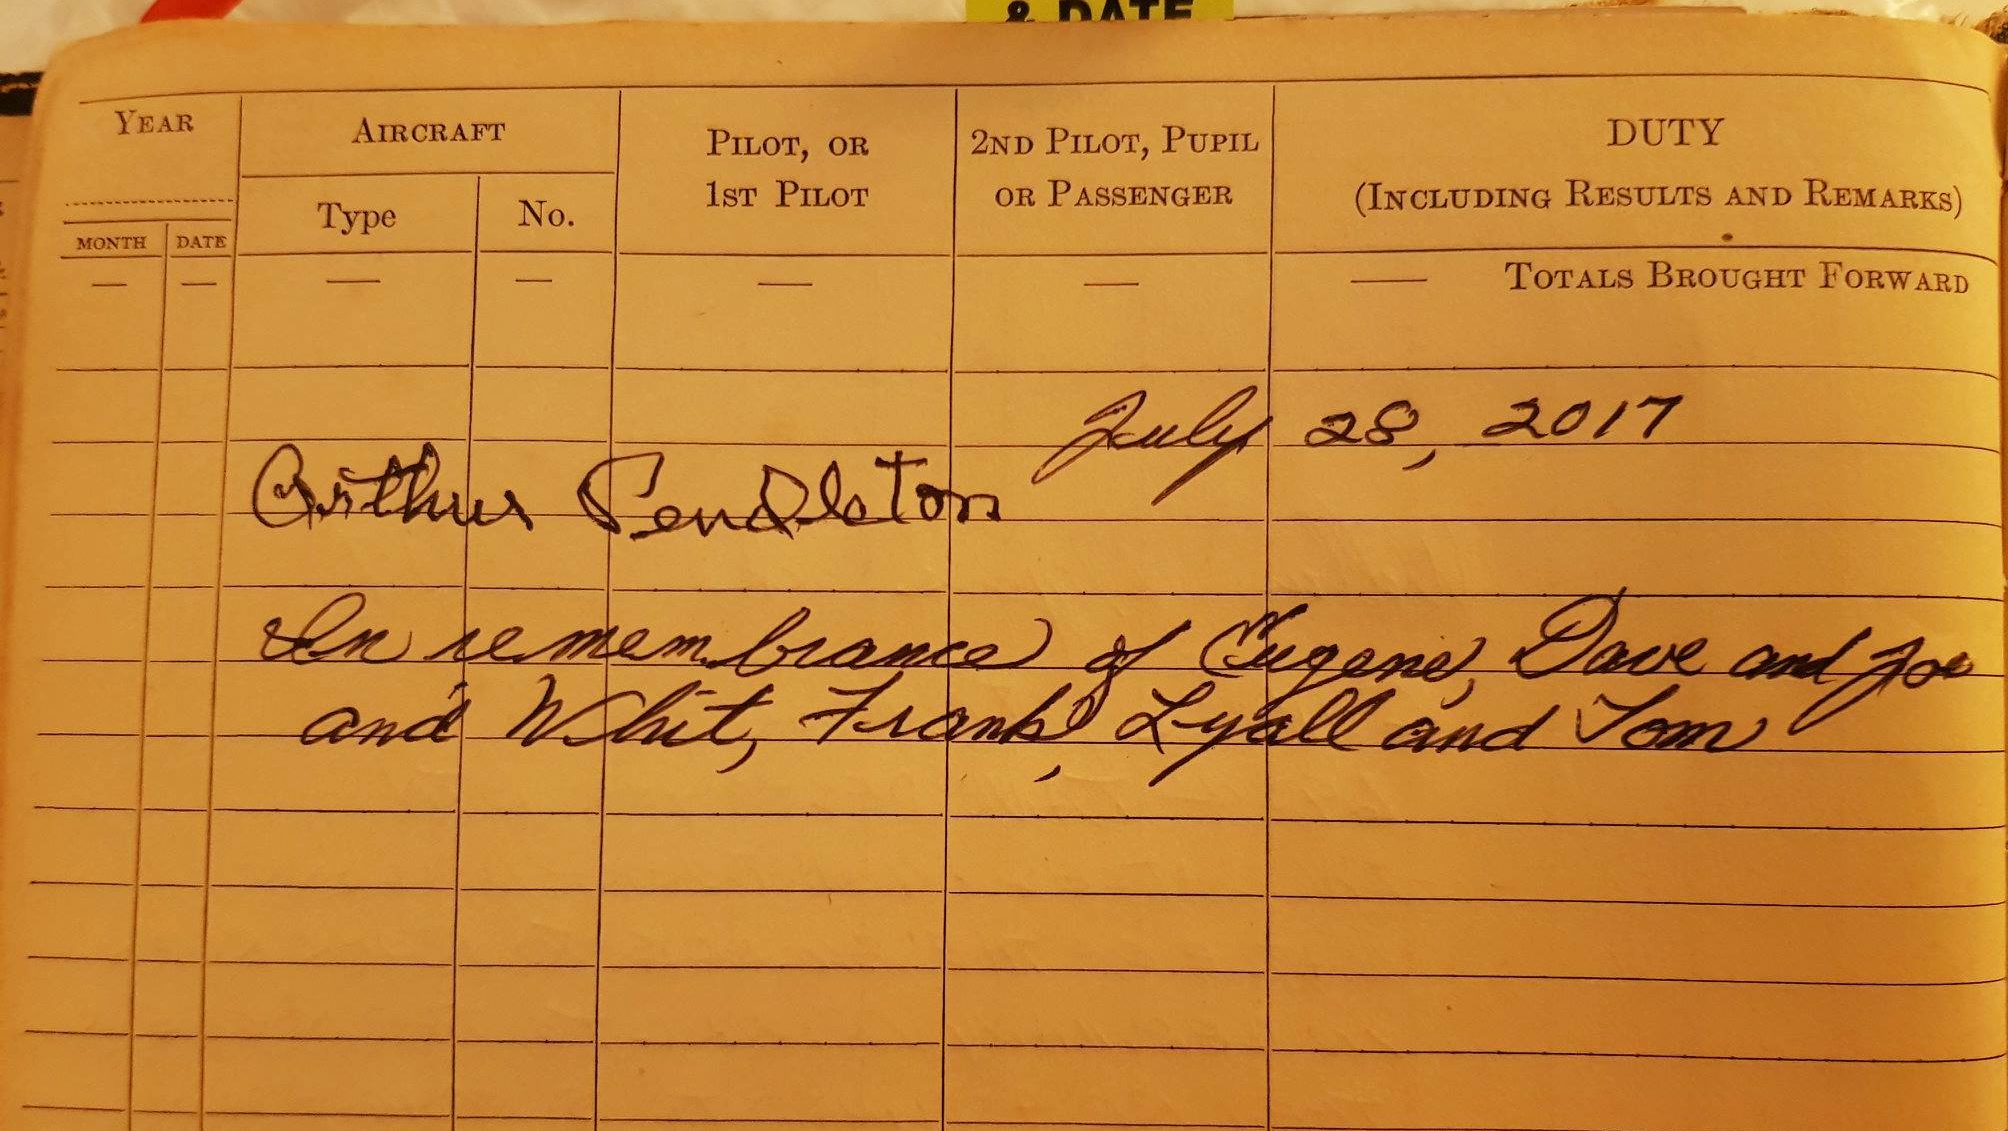 & DATE
YEAR
AIRCRAFT
PILOT, OR
1ST PILOT
2ND PILOT, PUPIL
OR PASSENGER
DUTY
(INCLUDING RESULTS AND REMARKS)
Type
No.
MONTH
DATE
— — — — — — — TOTALS BROUGHT FORWARD
July 28, 2017
Arthur Pendleton
In remembrance of Eugene, Dave and Joe
and Whit, Frank, Lyall and Tom